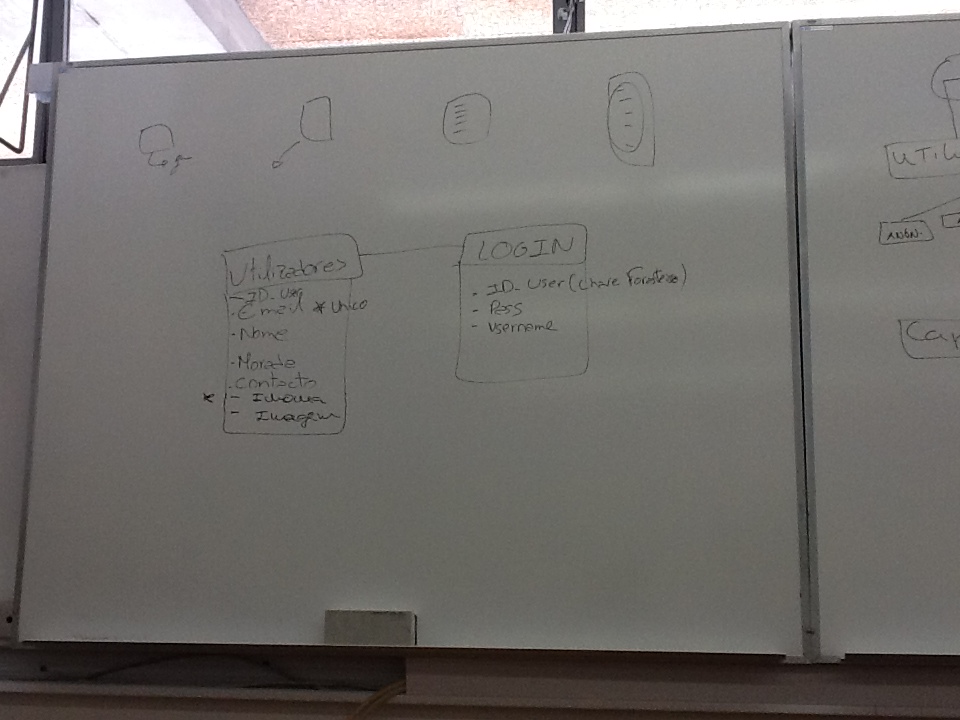 Utilizadores
- ID_User
- Email * Unico
- Nome
- Morada
- Contacto
* - Idioma
- Imagem
LOGIN
- ID_User (Chave Forasteira)
- Pass
- Username
UTIL
ANÓN.
Cap